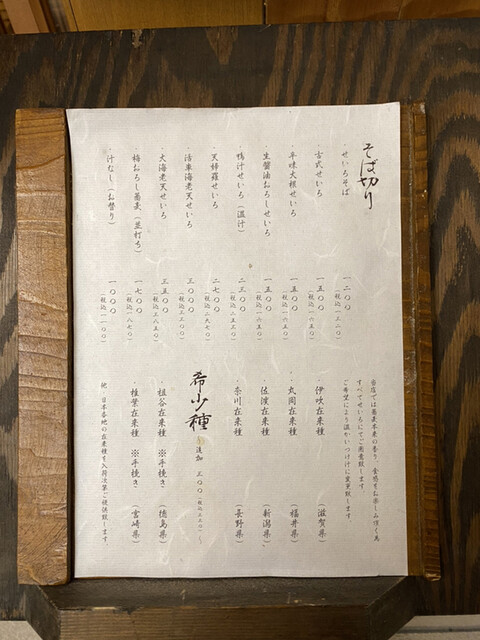 そば切り
・せいろそば 一二〇〇
(税込一三二〇)
・古式せいろ 一五〇〇
(税込一六五〇)
・辛味大根せいろ 一五〇〇
(税込一六五〇)
・生醤油おろしせいろ 一五〇〇
(税込一六五〇)
・鴨汁せいろ(温汁) 二三〇〇
(税込二五三〇)
・天婦羅せいろ 二七〇〇
(税込二九七〇)
・活車海老天せいろ 三〇〇〇
(税込三三〇〇)
・大海老天せいろ 三五〇〇
(税込三八五〇)
・梅おろし蕎麦(並打ち) 一七〇〇
(税込一八七〇)
・汁なし(お替り) 一〇〇〇
(税込一一〇〇)
当店では蕎麦本来の香り、食感をお楽しみ頂く為
すべてせいろにてご用意致します。
ご希望により温かいつけ汁に変更致します。
・伊吹在来種 (滋賀県)
・丸岡在来種 (福井県)
・佐渡在来種 (新潟県)
・奈川在来種 (長野県)
希少種 追加 三〇〇(税込三三〇)
・祖谷在来種 ※手挽き (徳島県)
・椎葉在来種 ※手挽き (宮崎県)
他、日本各地の在来種を入荷次第ご提供致します。